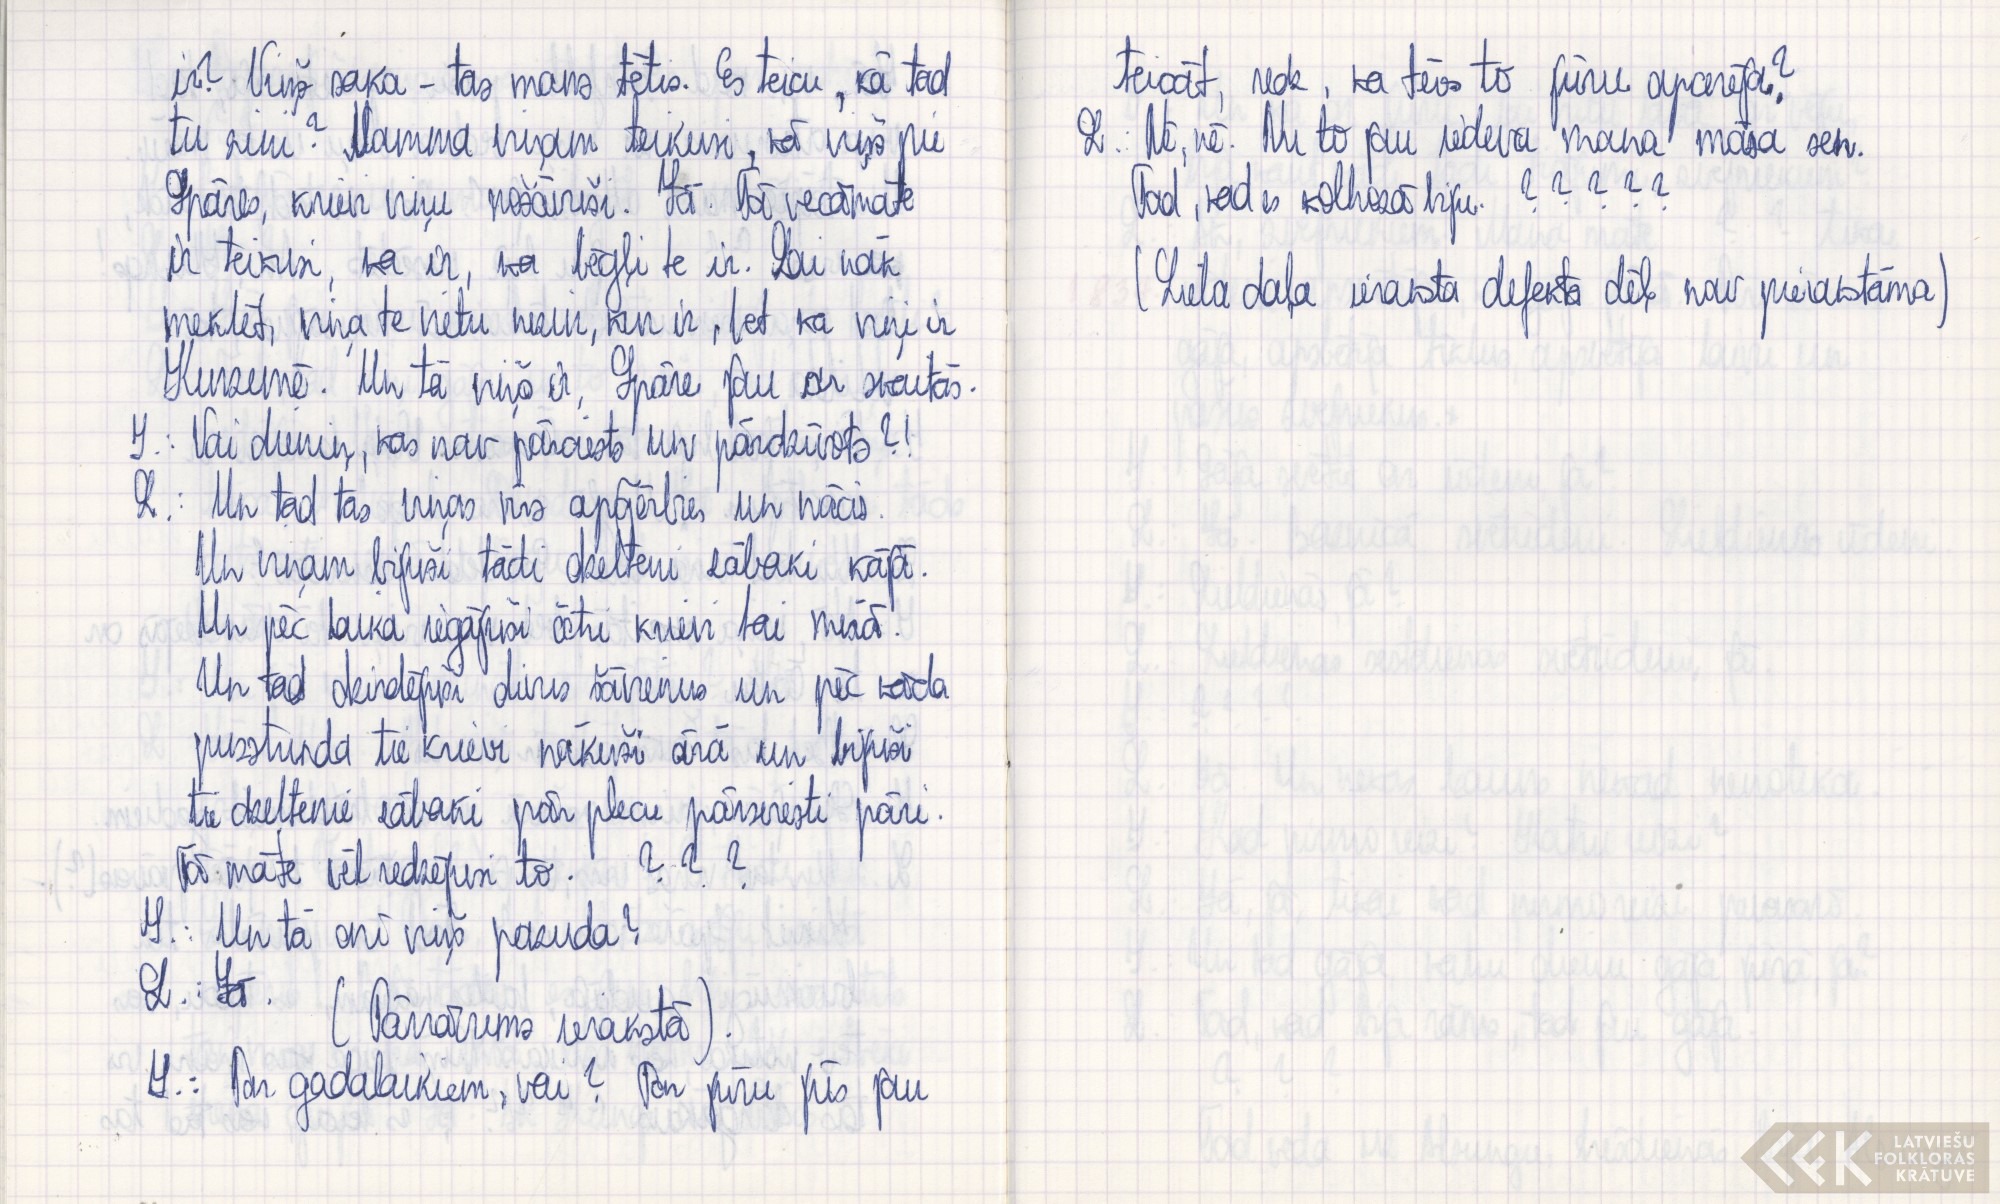 ir? Viņš saka – tas mans tētis. Es teicu, kā tad
tu zini? Mamma viņam teikusi, kā viņš pie
Spāres, krievi viņu nošāvuši. Jā. Tā vecāmāte
ir teikusi, ka ir, ka bēgļi te ir. Lai nāk
meklēt, viņa te vietu nezin, kur ir, bet ka viņi ir
Kurzemē. Un tā viņš ir, Spāre jau ar skaitās.
I.: Vai dieniņ, kas nav pāraists un pārdzīvots?!
L.: Un tad tas viņas vīrs apģērbies un nācis.
Un viņam bijuši tādi dzelteni zābaki kājā.
Un pēc laika iegājuši četri krievi tai mežā.
Un tad dzirdējusi divus šāvienus un pēc kāda
pusstunda tie krievi nākuši ārā un bijuši
tie dzeltenie zābaki pār plecu pārsviesti pāri.
Tā māte vēl redzējusi to. ? ? ?
I.: Un tā arī viņš pazuda?
L.: Jā.
(Pārrāvums ierakstā).
I.: Par gadalaikiem, vai? Par pūru jūs jau
teicāt, redz, ka tēvs to pūru aparēja?
L.: Nē, nē. Nu to jau iedeva mana māsa sen.
Tad, kad es kolhozā biju. ? ? ? ? ?
(Liela daļa ieraksta defekta dēļ nav pierakstāma)
LATVIEŠU
FOLKLORAS
KRĀTUVE